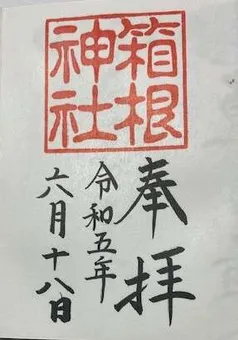 箱根
神社
奉拝
令和五年
六月十八日